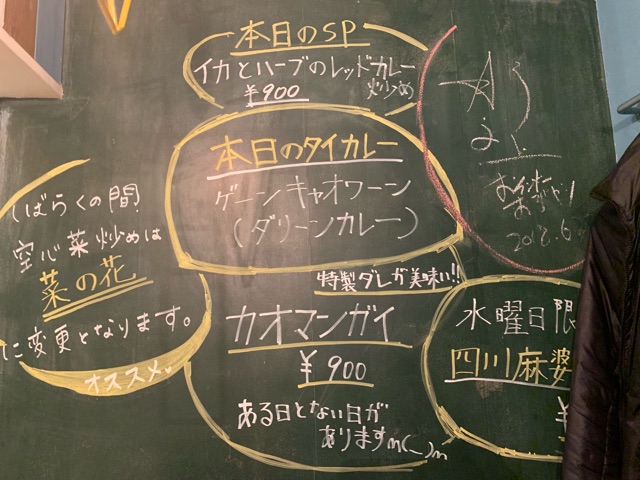 本日のSP
イカとハーブのレッドカレー
炒め
¥900
本日のタイカレー
ゲーンキャオワーン
(グリーンカレー)
しばらくの間!
空心菜炒めは
菜の花
に変更となります。
オススメ
特製ダレが美味い!!
カオマンガイ
¥900
ある日とない日が
ありますm(_)m
水曜日限
四川麻婆
¥
2018.6